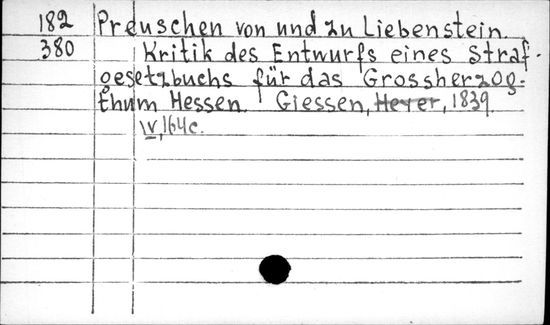 182 Preuschen von und zu Liebenstein.
380 Kritik des Entwurfs eines Straf-
gesetzbuchs für das Grossherzog-
thum Hessen. Giessen, Heyer, 1839.
IV, 164c.